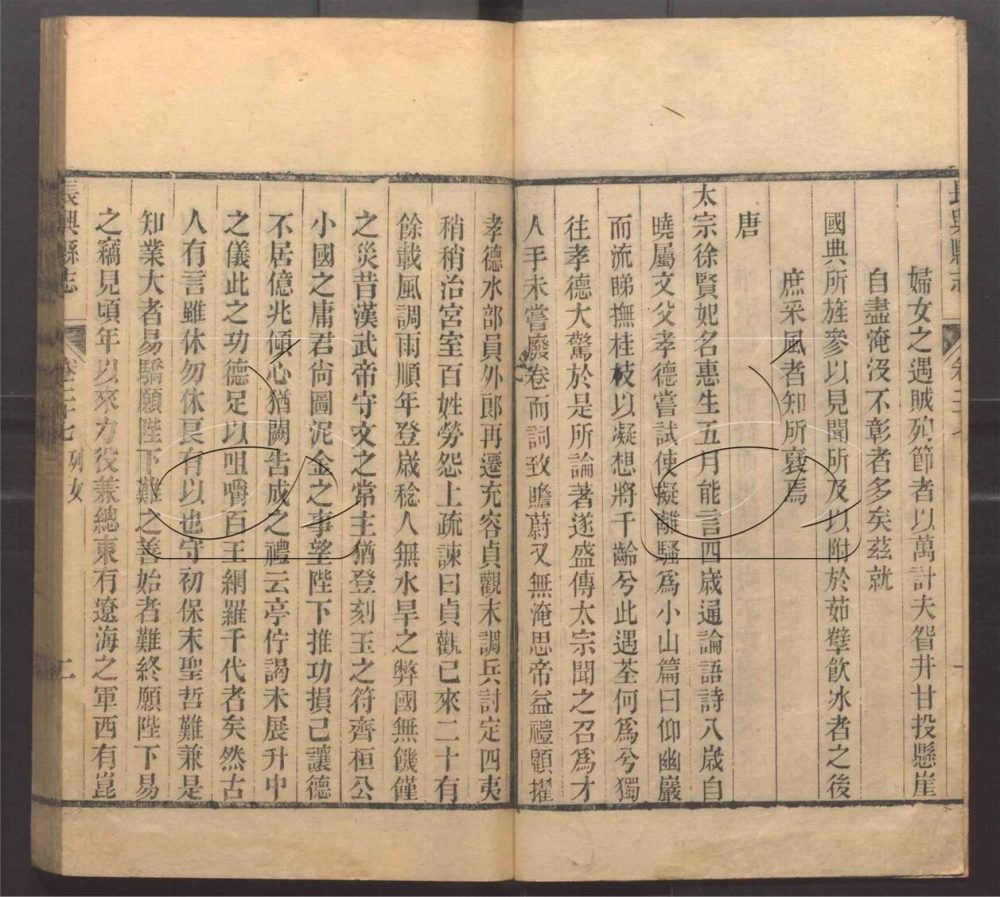 長興縣志
卷二十七
一
婦女之遇賊殉節者以萬計夫眢井甘投懸崖
自盡淹沒不彰者多矣茲就
國典所旌參以見聞所及以附於茹蘖飲冰者之後
庶采風者知所襃焉
唐
太宗徐賢妃名惠生五月能言四歲通論語詩八歲自
曉屬文父孝德嘗試使擬離騷爲小山篇曰仰幽巖
而流睇撫桂枝以凝想將千齡兮此遇荃何爲兮獨
往孝德大驚於是所論著遂盛傳太宗聞之召爲才
人手未嘗廢卷而詞致贍蔚又無淹思帝益禮顧擢
孝德水部員外郎再遷充容貞觀末調兵討定四夷
稍稍治宮室百姓勞怨上疏諫曰貞觀已來二十有
餘載風調雨順年登歲稔人無水旱之弊國無饑僅
之災昔漢武帝守文之常主猶登刻玉之符齊桓公
小國之庸君尙圖泥金之事望陛下推功損己讓德
不居億兆傾心猶闕告成之禮云亭佇謁未展升中
之儀此之功德足以咀嚼百王網羅千代者矣然古
人有言雖休勿休良有以也守初保末聖哲難兼是
知業大者易驕願陛下難之善始者難終願陛下易
之竊見頃年以來力役兼總東有遼海之軍西有崑
長興縣志
卷二十七 列女
二